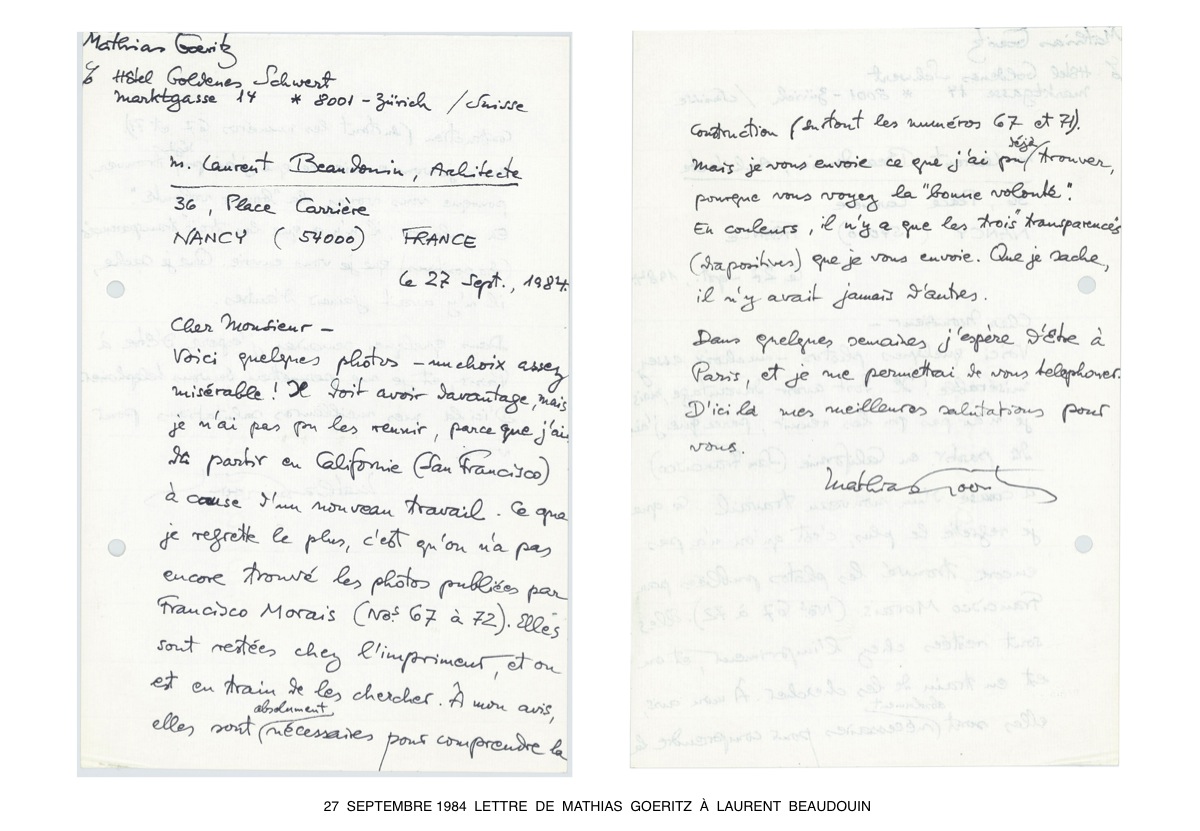 Mathias Goeritz
℅ Hôtel Goldenes Schwert
Marktgasse 14 * 8001 - Zürich / Suisse
M. Laurent Beaudouin, Architecte
36, Place Carrière
NANCY (54000) FRANCE
Le 27 Sept., 1984.
Cher Monsieur –
Voici quelques photos – un choix assez
misérable! Il doit avoir davantage, mais
je n'ai pas pu les reunir, parce que j'ai
dû partir en Californie (San Francisco)
à cause d'un nouveau travail. Ce que
je regrette le plus, c'est qu'on n'a pas
encore trouvé les photos publiées par
Francisco Morais (Nos. 67 à 72). Elles
sont restées chez l'imprimeur, et on
est en train de les chercher. À mon avis,
elles sont absolument nécessaires pour comprendre la
construction (surtout les numéros 67 et 71).
Mais je vous envoie ce que j'ai pu déjà trouver,
pourque vous voyez la "bonne volonté".
En couleurs, il n'y a que les trois "transparences"
(diapositives) que je vous envoie. Que je sache,
il n'y avait jamais d'autres.
Dans quelques semaines j'espère d'être à
Paris, et je me permettrai de vous telephoner.
D'ici là mes meilleures salutations pour
vous.
Mathias Goeritz
27 SEPTEMBRE 1984 LETTRE DE MATHIAS GOERITZ À LAURENT BEAUDOUIN